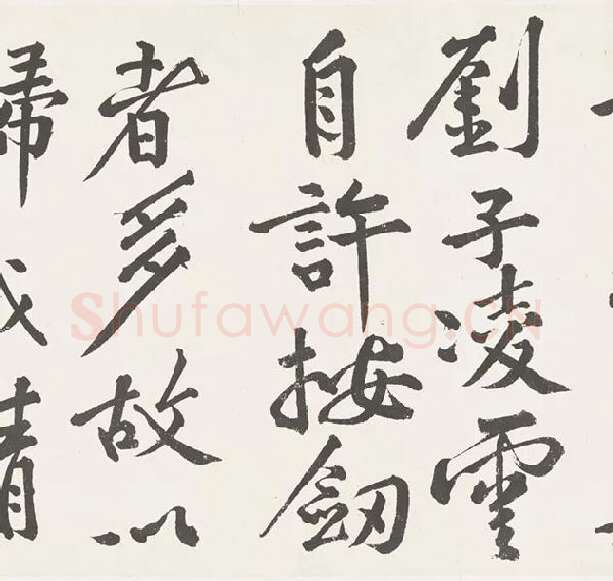 劉子凌雲
自許按劔
者多故以
歸
Shufawang.CN